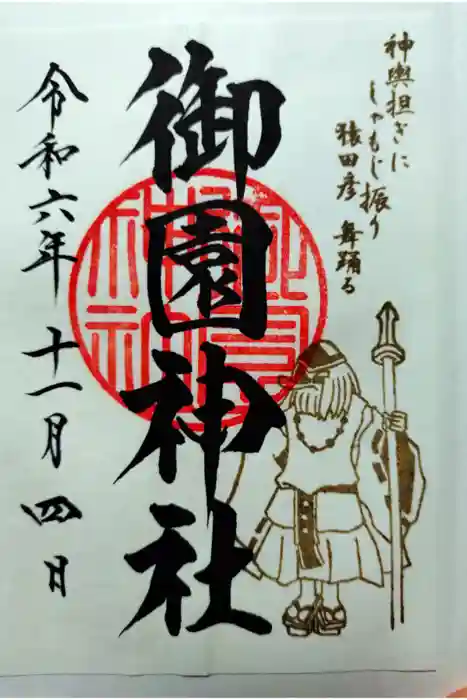 神輿担ぎに
しゃもじ振り
猿田彦 舞踊る
御園神社
令和六年 十一月 四日